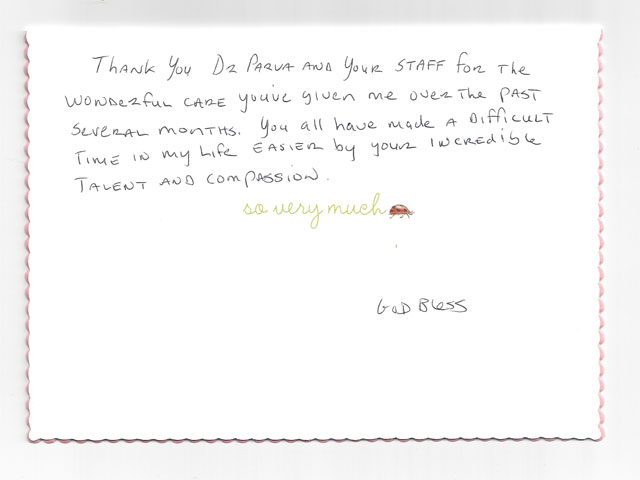 Thank You Dr Parva and Your staff for the
wonderful care you've given me over the past
several months. You all have made a difficult
time in my life easier by your incredible
talent and compassion.
so very much
God Bless